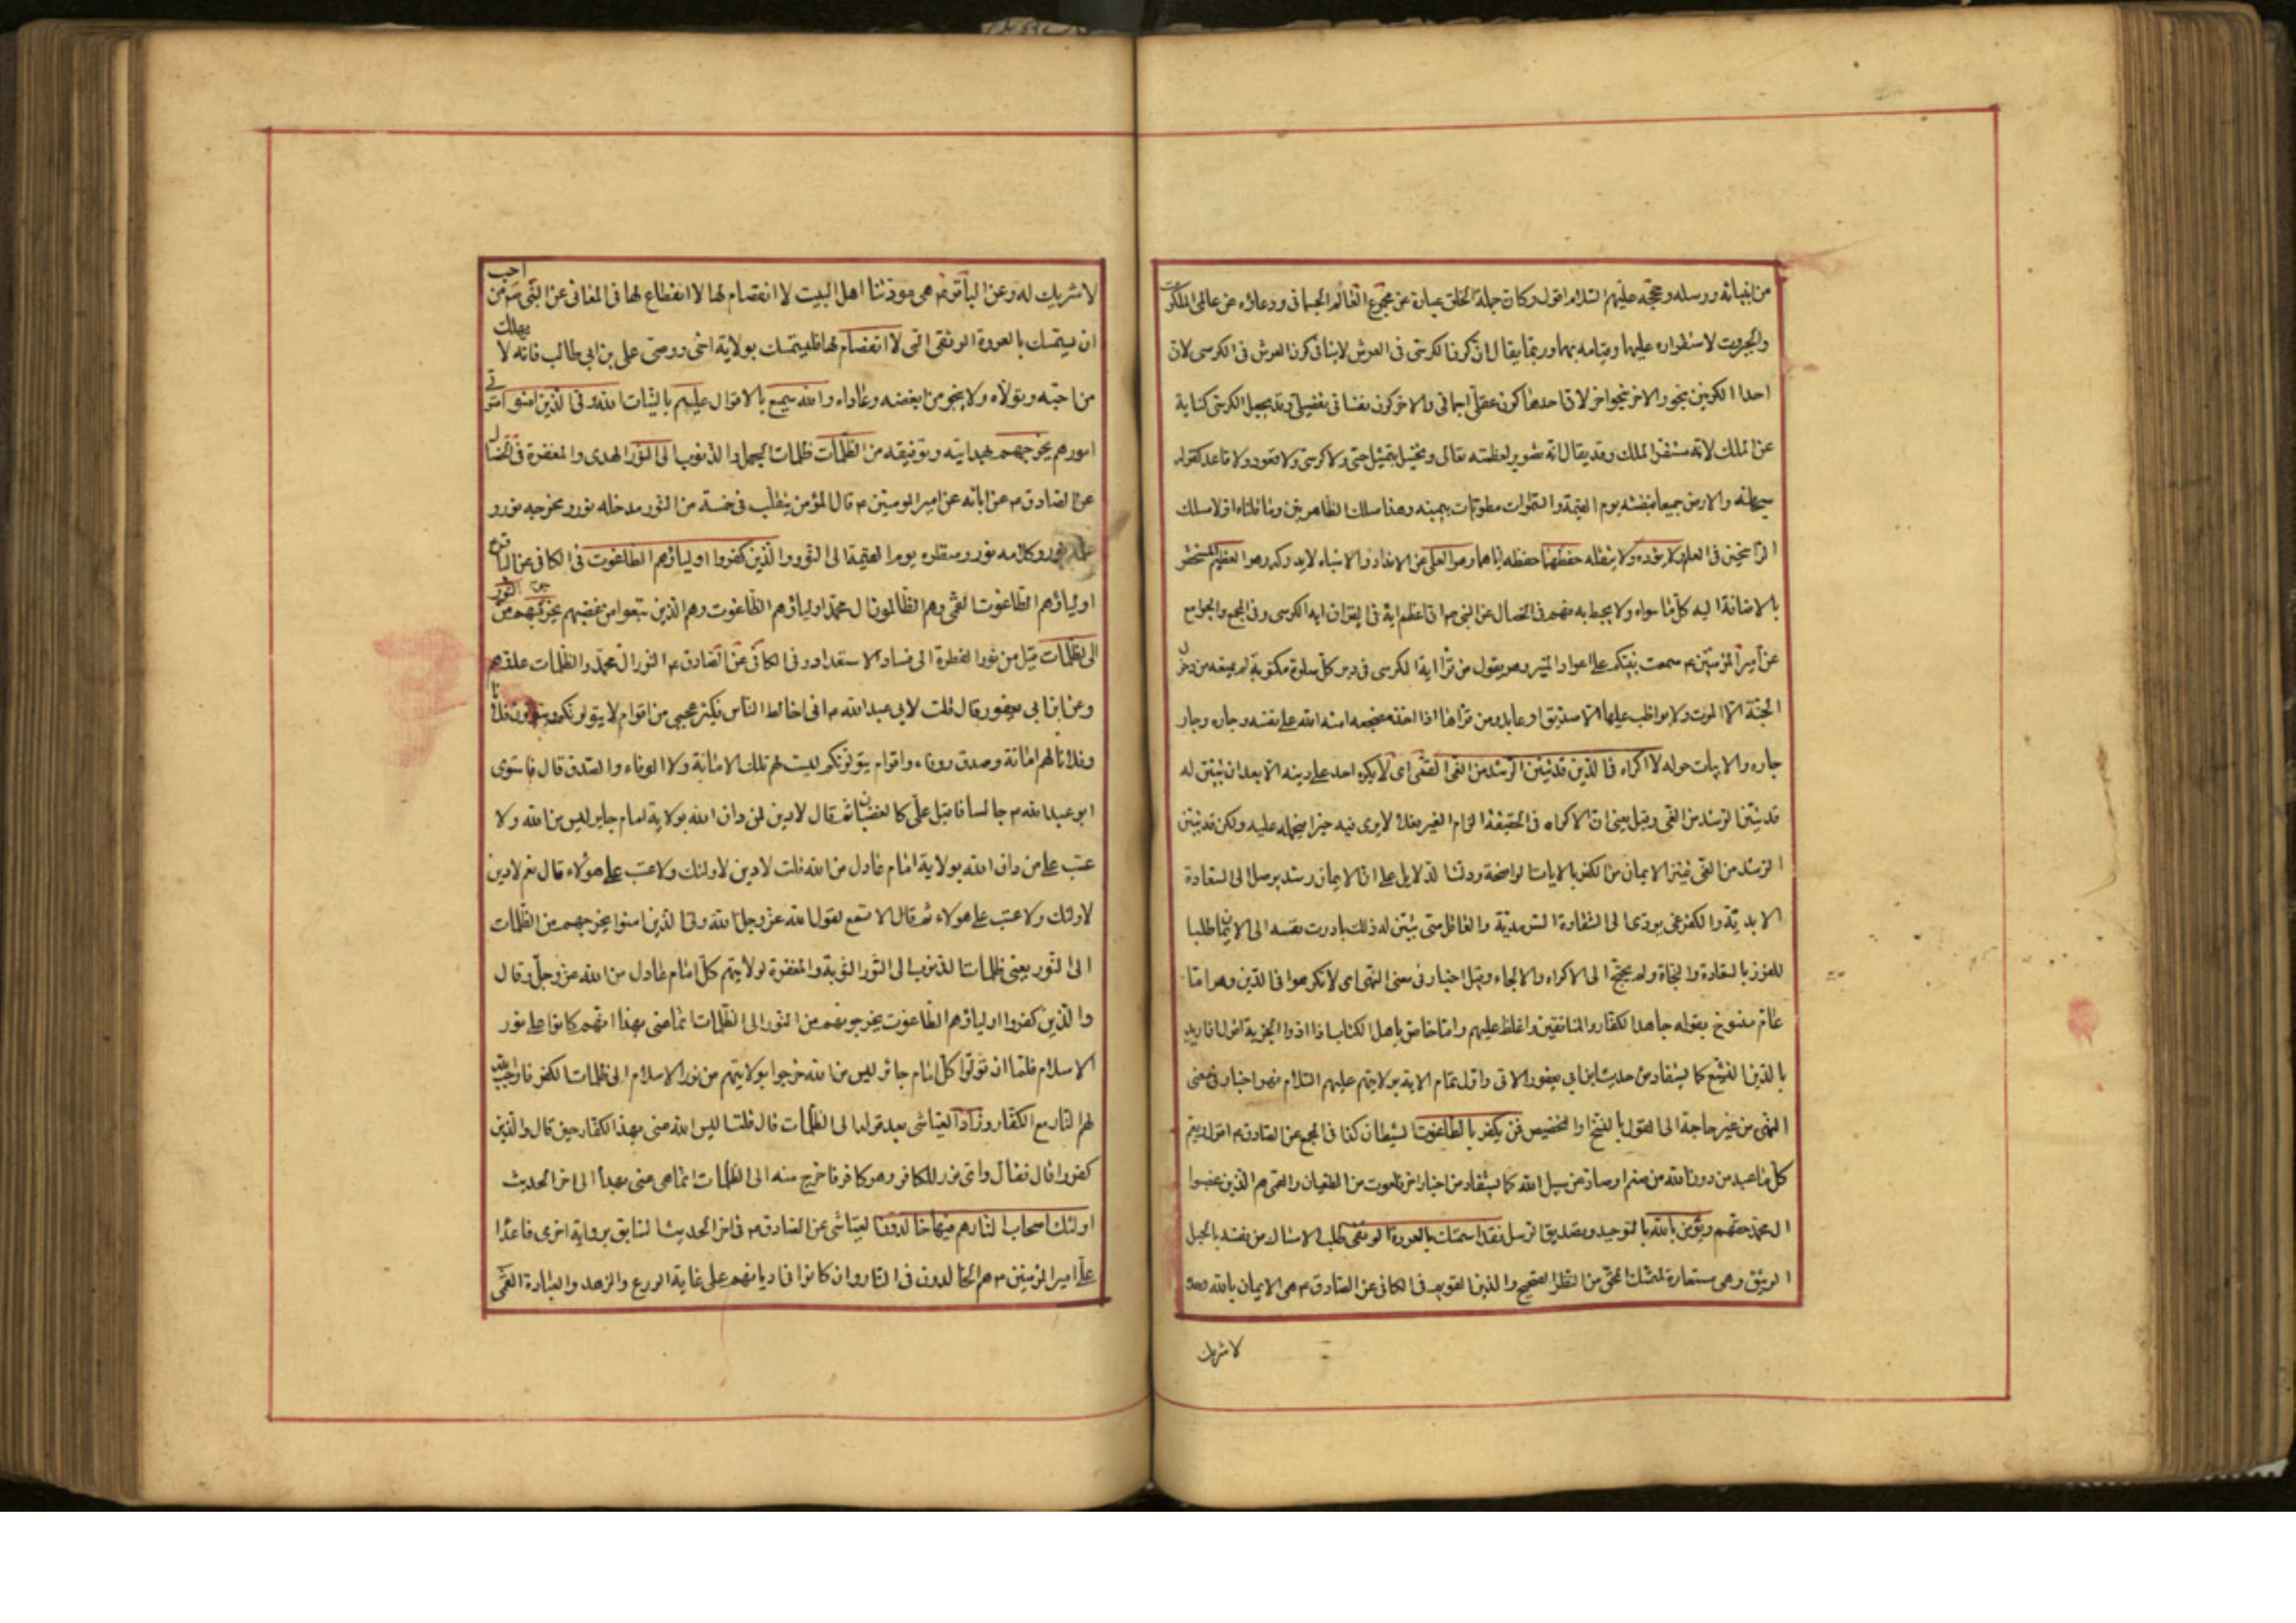 من انبيائه ورسله وحججه عليهم السلام اقول وكان جملة الخلق عبارة عن مجموع العالم الجسمانى ووعاؤه عن عالمى الملكوت
والجبروت لاستقراره عليها وقيامه بهما وربما يقال ان كون الكرسى فى العرش لا ينافى كون العرش فى الكرسى لان
احد الكونين بنحو والاخر بنحو اخر لان احدهما كون عقلى اجمالى والاخر كون نفسانى تفصيلى وقد يجعل الكرسى كناية
عن الملك لانه مستقر الملك وقد يقال انه تصوير لعظمته تعالى وتخييل بتمثيل حسى ولا كرسى ولا قعود ولا قاعد كقوله
سبحانه والارض جميعا قبضته يوم القيمة والسموات مطويات بيمينه وهذا مسلك الظاهريين وما قلناه اولا مسلك
الراسخين فى العلم ولا يؤده ولا يثقله حفظهما حفظه اياهما وهو العلى عن الانداد والاشباه لا يدركه وهو العظيم المستحقر
بالاضافة اليه كل ما سواه ولا يحيط به فهم فى الخصال عن النبى ص ان اعظم اية فى القران اية الكرسى وفى المجمع والجوامع
عن امير المؤمنين ع سمعت نبيكم على اعواد المنبر وهو يقول من قرأ اية الكرسى فى دبر كل صلوة مكتوبة لم يمنعه من دخول
الجنة الا الموت ولا يواظب عليها الا صديق او عابد ومن قراها اذا اخذ مضجعه امنه الله على نفسه وجاره وجار
جاره والابيات حوله لا اكراه فى الدين قد تبين الرشد من الغى القمى اى لا يكره احد على دينه الا بعد ان تبين له
قد تبين الرشد من الغى وقيل يعنى ان الاكراه فى الحقيقة الزام الغير فعلا لا يرى فيه خيرا يحمله عليه ولكن قد تبين
الرشد من الغى تميز الايمان من الكفر بالايات الواضحة ودلت الدلايل على ان الايمان رشد يوصل الى السعادة
الابدية والكفر غى يودى الى الشقاوة السرمدية والعاقل متى تبين له ذلك بادرت نفسه الى الايمان طلبا
للفوز بالسعادة والنجاة ولم يحتج الى الاكراه والالجاء وقيل اخبار فى معنى النهى اى لا تكرهوا فى الدين وهو اما
عام منسوخ بقوله جاهد الكفار والمنافقين واغلظ عليهم واما خاص باهل الكتاب اذا ادوا الجزية اقول ان اريد
بالدين التشيع كما يستفاد من حديث ابن ابى يعفور الاتى واول تمام الاية بولايتهم عليهم السلام فهو اخبار فى معنى
النهى من غير حاجة الى القول بالنسخ او التخصيص فمن يكفر بالطاغوت الشيطان كذا فى المجمع عن الصادق ع اقول ويعم
كل ما عبد من دون الله من صنم او صاد عن سبيل الله كما يستفاد من اخبار اخر فالطاغوت من الطغيان والقمى هم الذين غصبوا
ال محمد حقهم ويؤمن بالله بالتوحيد وتصديق الرسل فقد استمسك بالعروة الوثقى طلب الامساك من نفسه بالحبل
الوثيق وهى مستعارة لمتمسك المحق من النظر الصحيح والدين القويم فى الكافى عن الصادق ع هى الايمان بالله وحده
لا شريك
لا شريك له وعن الباقر ع هى مودتنا اهل البيت لا انفصام لها لا انقطاع لها فى المعانى عن النبى ص من احب
ان يستمسك بالعروة الوثقى التى لا انفصام لها فليتمسك بولاية اخى ووصى على بن ابى طالب فانه لا يهلك
من احبه وتولاه ولا ينجو من ابغضه وعاداه والله سميع بالاقوال عليم بالنيات الله ولى الذين امنوا متولى
امورهم يخرجهم بهدايته وتوفيقه من الظلمات ظلمات الجهل والذنوب الى النور الهدى والمغفرة فى الخصال
عن الصادق ع عن ابائه عن امير المومنين ع قال المؤمن يتقلب فى خمسة من النور مدخله نور ومخرجه نور و
علمه نور وكلامه نور ومنظره يوم القيمة الى النور والذين كفروا اولياؤهم الطاغوت فى الكافى عن الباقر ع
اولياؤهم الطاغوت القمى وهم الظالمون ال محمد اولياؤهم الطاغوت وهم الذين تبعوا من غصبهم يخرجونهم من النور
الى الظلمات قيل من نور الفطرة الى فساد الاستعداد وفى الكافى عن الصادق ع النور ال محمد والظلمات عدوهم
وعن ابن ابى يعفور قال قلت لابى عبد الله ع انى اخالط الناس فيكثر عجبى من اقوام لا يتولونكم ويتولون فلانا
وفلانا لهم امانة وصدق ووفاء واقوام يتولونكم ليست لهم تلك الامانة ولا الوفاء والصدق قال فاستوى
ابو عبد الله ع جالسا فاقبل على كالغضبان ثم قال لا دين لمن دان الله بولاية امام جاير ليس من الله ولا
عتب على من دان الله بولاية امام عادل من الله قلت لا دين لاولئك ولا عتب على هؤلاء قال نعم لا دين
لاولئك ولا عتب على هولاء ثم قال الا تسمع لقول الله عز وجل الله ولى الذين امنوا يخرجهم من الظلمات
الى النور يعنى ظلمات الذنوب الى النور التوبة والمغفرة لولايتهم كل امام عادل من الله عز وجل وقال
والذين كفروا اولياؤهم الطاغوت يخرجونهم من النور الى الظلمات انما عنى بهذا انهم كانوا على نور
الاسلام فلما ان تولوا كل امام جائر ليس من الله خرجوا بولايتهم من نور الاسلام الى ظلمات الكفر فاوجب الله
لهم النار مع الكفار وزاد العياشى بعد قوله الى الظلمات قال قلت اليس الله عنى بهذا الكفار حين قال والذين
كفروا قال فقال واى نور للكافر وهو كافر فاخرج منه الى الظلمات انما هى عنى بهدا الى اخر الحديث
اولئك اصحاب النار هم فيها خالدون العياشى عن الصادق ع فى اخر الحديث السابق برواية اخرى فاعداء
على امير المؤمنين ع هم الخالدون فى النار وان كانوا فى اديانهم على غاية الورع والزهد والعبادة القمى